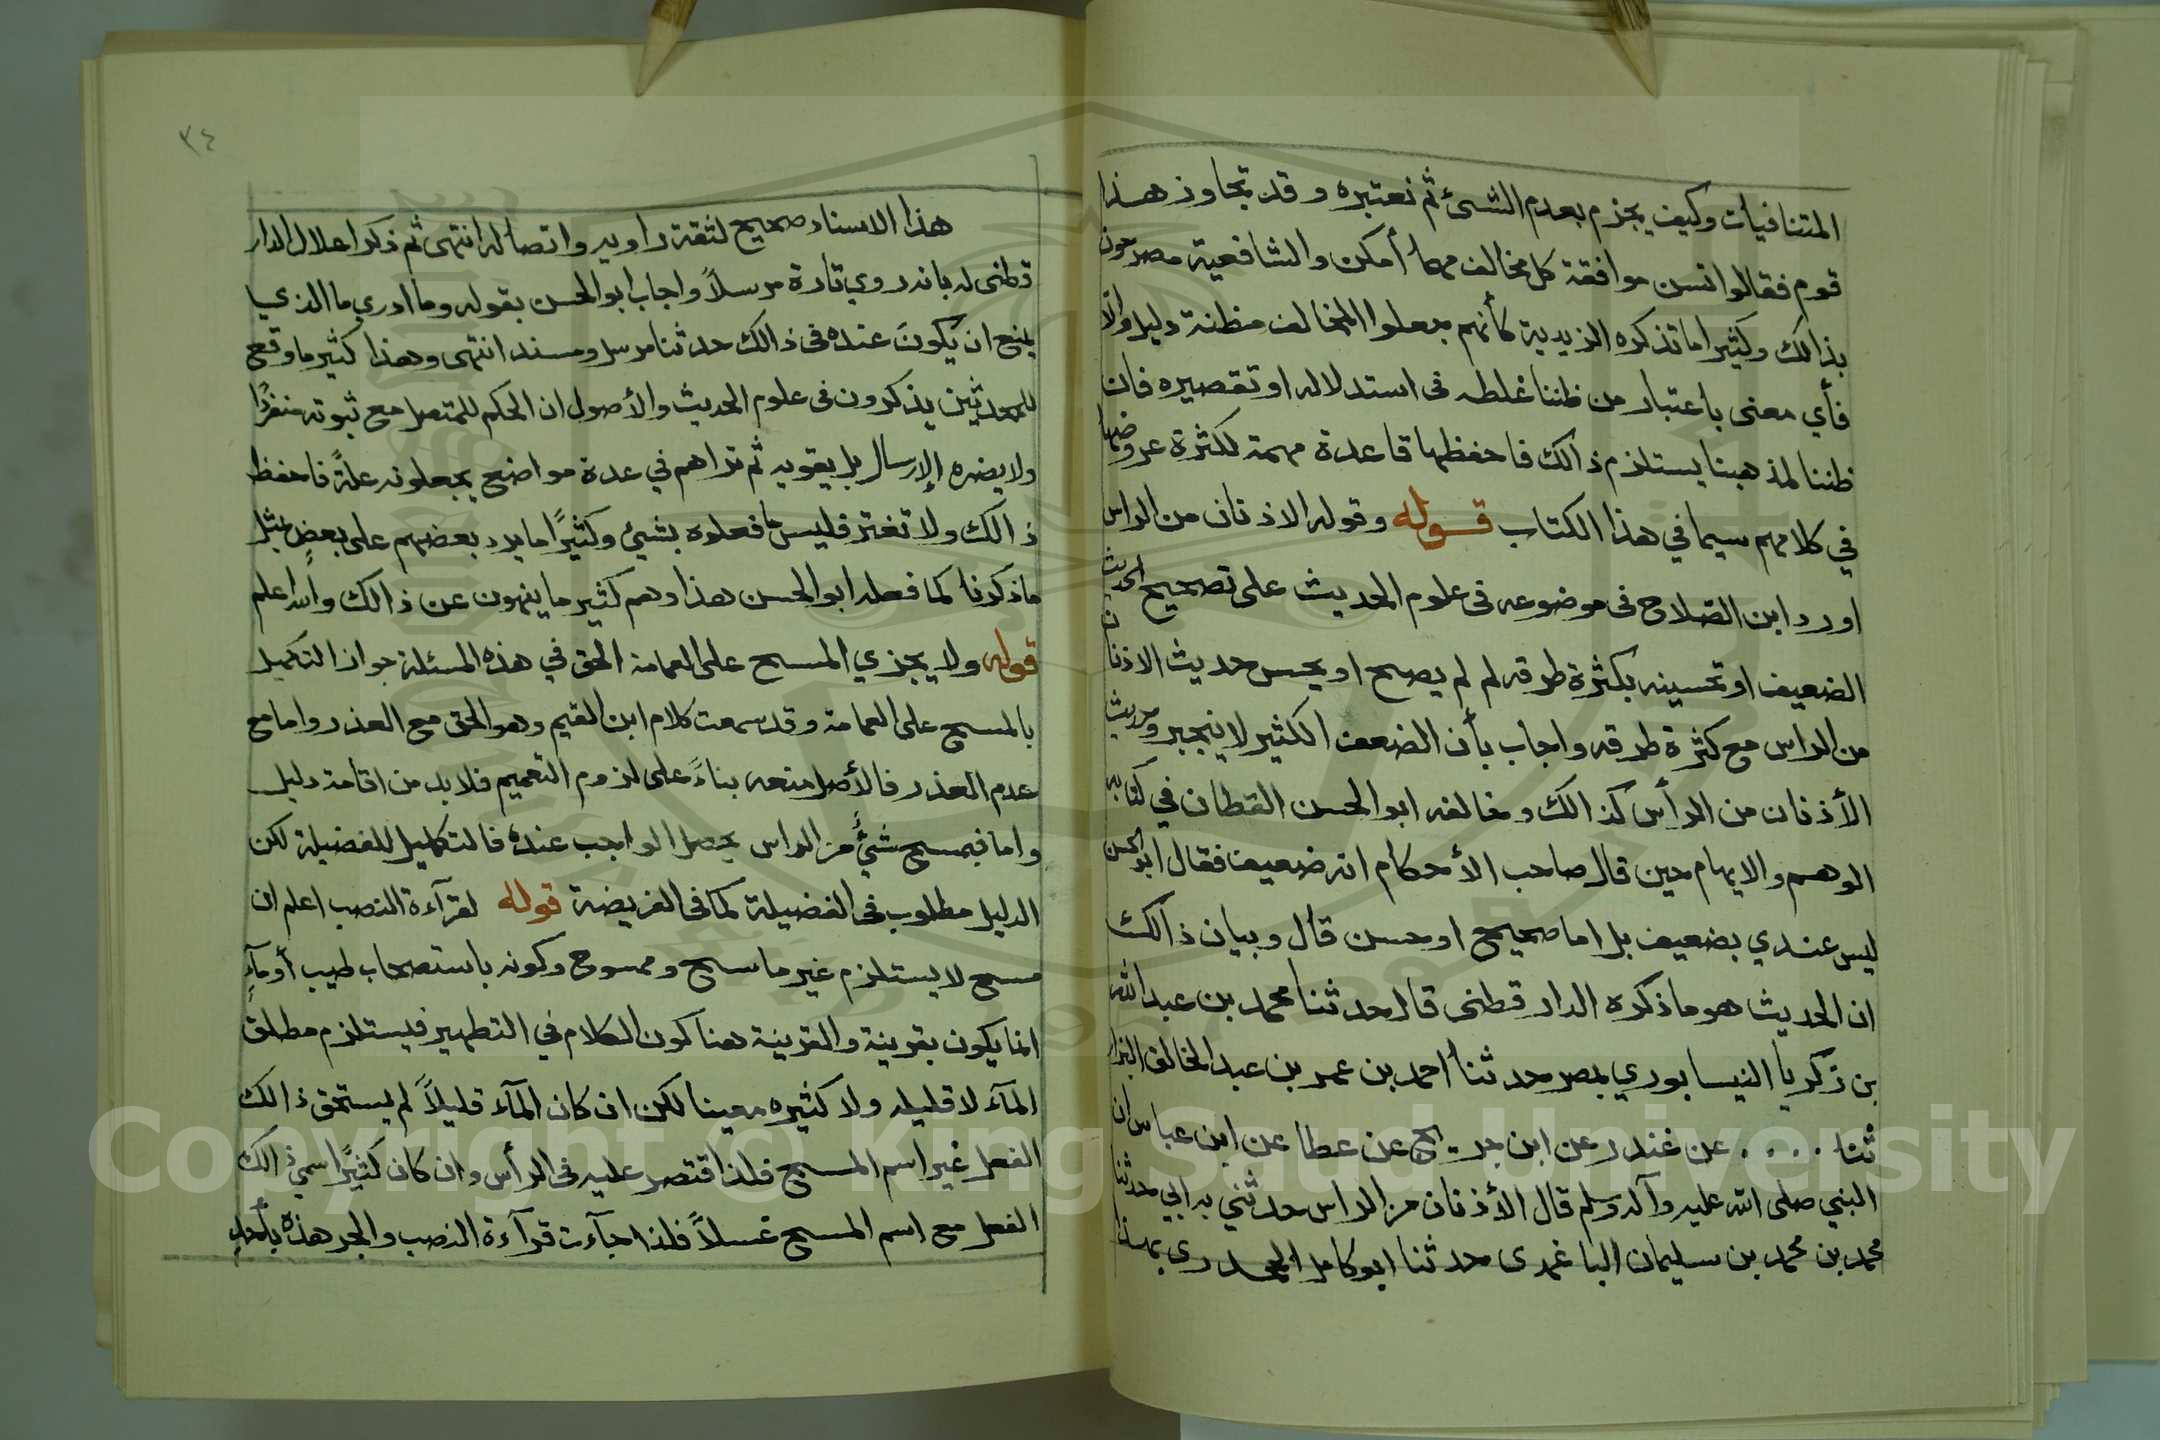 المتنافيات وكيف يجزم بعدم الشئ ثم نعتبره وقد تجاوز هذا
قوم فقالوا تسن موافقة كل مخالف مهما أمكن والشافعية مصرحون
بذالك وكثيرا ما تذكره الزيدية كأنهم جعلوا المخالف مظنة دليل والا
فأي معنى باعتبار من ظننا غلطه فى استدلاله او تقصيره فان
ظننا لمذهبنا يستلزم ذالك فاحفظها قاعدة مهمة لكثرة عروضها
في كلامهم سيما في هذا الكتاب قوله وقوله الاذنان من الراس
اورد ابن الصلاح فى موضوعه فى علوم الحديث على تصحيح الحديث
الضعيف او تحسينه بكثرة طرقه لم لم يصح او يحسن حديث الاذنان
من الراس مع كثرة طرقه واجاب بأن الضعف الكثير لا ينجبر وحديث
الأذنان من الرأس كذالك وخالفه ابو الحسن القطان في كتابه
الوهم والايهام حين قال صاحب الأحكام انه ضعيف فقال ابو الحسن
ليس عندي بضعيف بل اما صحيح او حسن قال وبيان ذالك
ان الحديث هو ما ذكره الدارقطنى قال حدثنا محمد بن عبدالله
بن زكريا النيسابوري بمصر حدثنا احمد بن عمر بن عبد الخالق البزار
ثنا .... عن غندر عن ابن جريج عن عطا عن ابن عباس ان
النبي صلى الله عليه وآله وسلم قال الأذنان من الراس حدثني به ابي حدثنا
محمد بن محمد بن سليمان الباغندى حدثنا ابو كامل الجحدرى بهذا
٣٤
هذا الاسناد صحيح لثقة راويه واتصاله انتهى ثم ذكر اعلال الدار
قطنى له بانه روي تارة مرسلاً واجاب ابو الحسن بقوله وما ادري ما الذي
يمنع ان يكون عنده فى ذالك حدثنا مرسل ومسند انتهى وهذا كثير ما وقع
للمحدثين يذكرون فى علوم الحديث والأصول ان الحكم للمتصل مع ثبوته منفردًا
ولا يضره الإرسال بل يقويه ثم تراهم في عدة مواضع يجعلونه علة فاحفظ
ذالك ولا تغتر فليس ما فعلوه بشيئ وكثيرًا ما يرد بعضهم على بعض بمثل
ما ذكرنا كما فعله ابو الحسن هذا وهم كثير ما ينهون عن ذالك والله اعلم
قوله ولا يجزي المسح على العمامة الحق في هذه المسئلة جواز التكميل
بالمسح على العمامة وقد سمعت كلام ابن القيم وهو الحق مع العذر واما مع
عدم العذر فالأصل منعه بناءً على لزوم التعميم فلا بد من اقامة دليل
واما فيمسح شئ من الراس يحصل الواجب عنده فالتكميل للفضيلة لكن
الدليل مطلوب فى الفضيلة كما فى الفريضة قوله لقرآءة النصب اعلم ان
مسح لا يستلزم غير ماسح وممسوح وكونه باستصحاب طيب أو مآءٍ
انما يكون بقرينة والقرينة هنا كون الكلام في التطهير فيستلزم مطلق
المآء لا قليله ولا كثيره معينا لكن ان كان المآء قليلاً لم يستحق ذالك
الفعل غير اسم المسح فلذا اقتصر عليه فى الرأس وان كان كثيرًا سمي ذالك
الفعل مع اسم المسح غسلاً فلذا جآءت قرآءة النصب والجر هذه بأحد
Copyright © King Saud University